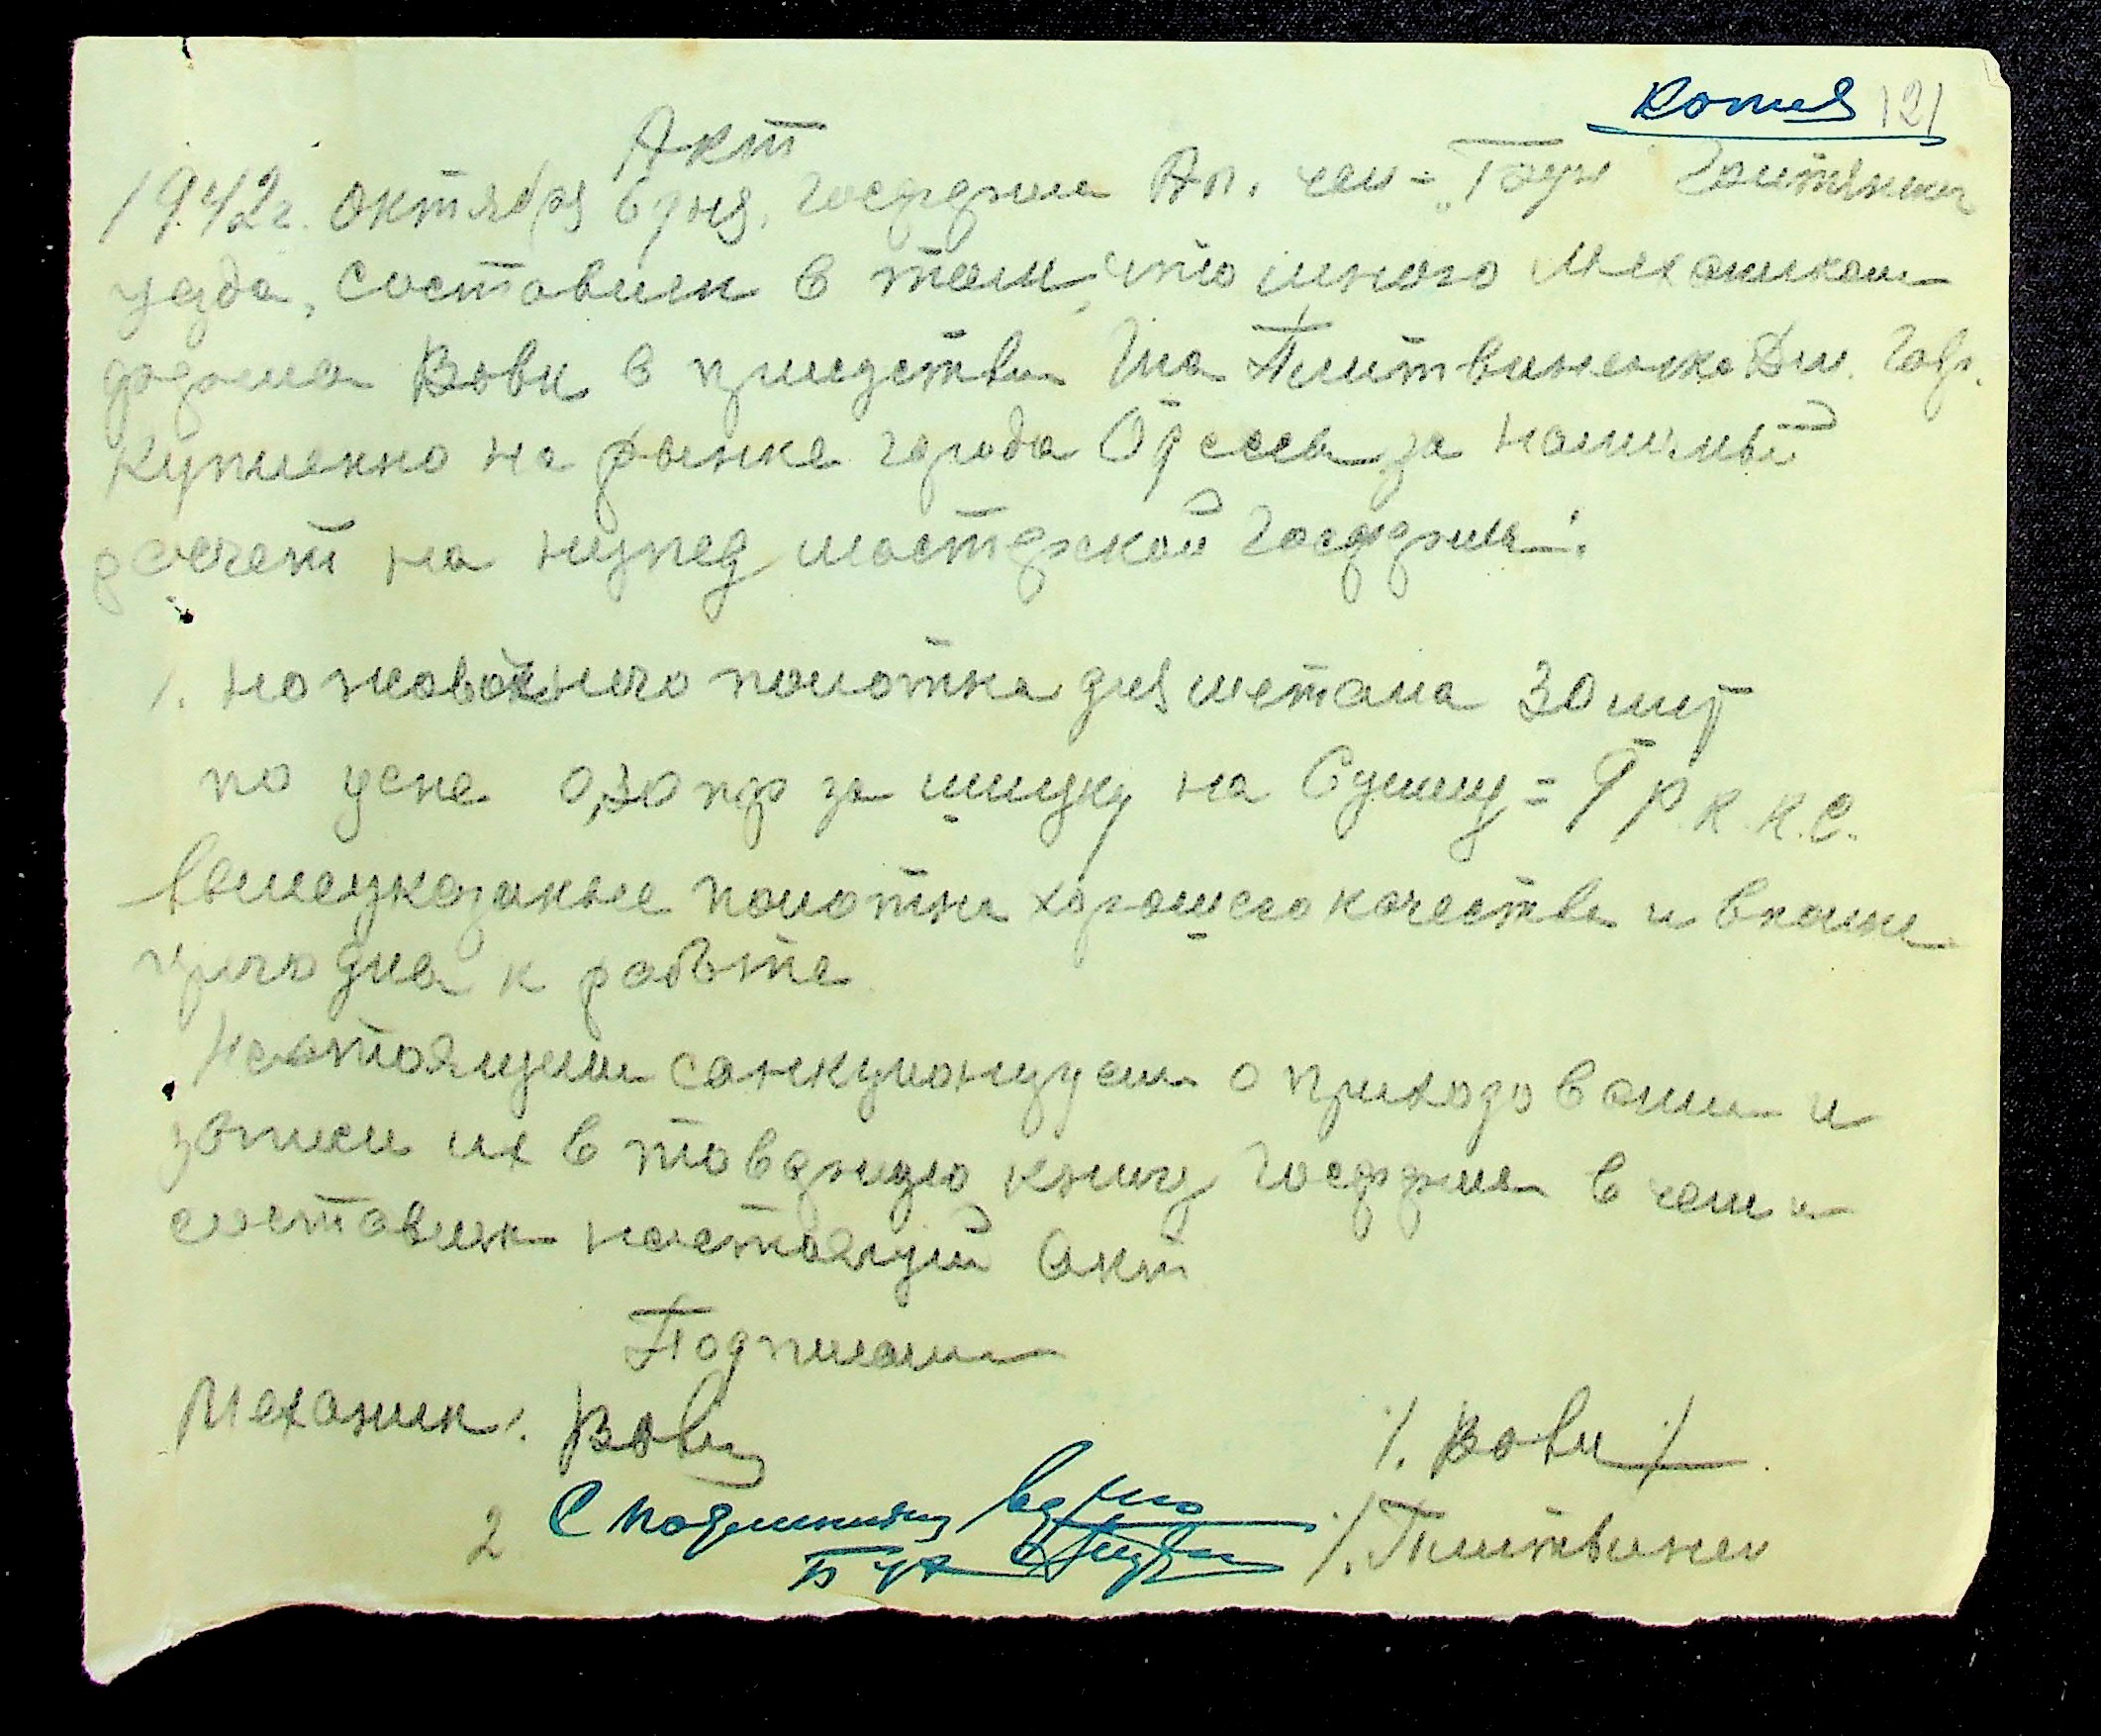 Копия 121
Акт
1942г. октября 6 дня. Госферма Ап.
уезда, составили в том, что мною механиком
фермы Вовк в присудствии Дм. Гавр.
Куплекно на рынке города Одессы за наличный
расчет на нужед мастерской Госфермы:
1. ножовочного полотна для метала 30 шт
по цене 0,30 пф за штуку на Сумму = 9 Р.К.К.С.
Вышеуказаные полотна хорошего качества и вполне
пригодна к работе
Настоящим санкционируем оприходовании и
записи их в товарную книгу Госфермы в чем и
составили настоящий Акт
Подписали
Механик. Вовк /. Вовк /
2 С подлинным верно /. Плитвинен
Бух